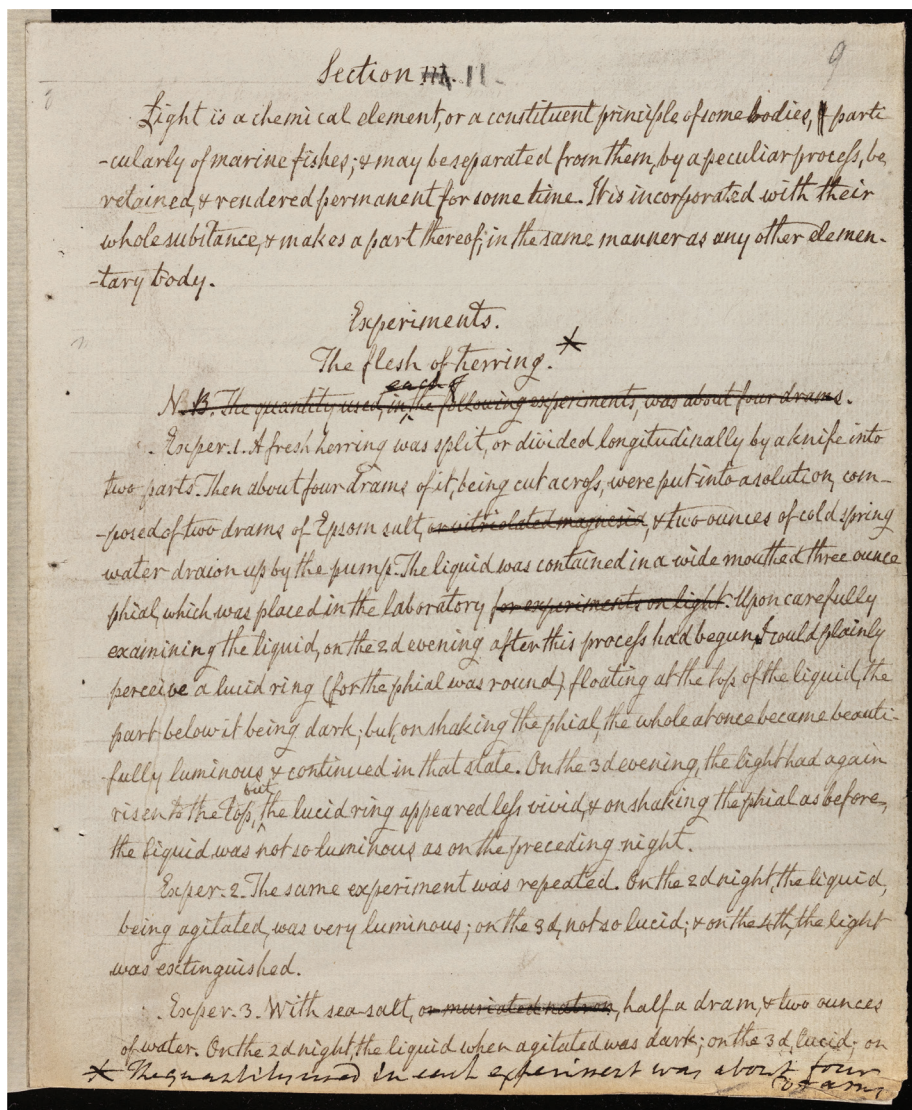 9
Section III. II.
Light is a chemical element, or a constituent principle of some bodies, parti-
-cularly of marine fishes; & may be separated from them, by a peculiar process, be
retained, & rendered permanent for some time. It is incorporated with their
whole substance, & makes a part thereof, in the same manner as any other elemen-
-tary body.
Experiments.
The flesh of herring. *
each of
N.B. The quantity used, in the following experiments, was about four drams.
Exper. 1. A fresh herring was split, or divided longitudinally by a knife into
two parts. Then about four drams of it, being cut across, were put into a solution, com-
-posed of two drams of Epsom salt, or vitriolated magnesia, & two ounces of cold spring
water drawn up by the pump. The liquid was contained in a wide mouthed three ounce
phial, which was placed in the laboratory for experiments on light. Upon carefully
examining the liquid, on the 2d evening after this process had begun, I could plainly
perceive a lucid ring (for the phial was round) floating at the top of the liquid, the
part below it being dark; but, on shaking the phial, the whole at once became beauti-
-fully luminous, & continued in that state. On the 3d evening, the light had again
but,
risen to the top, the lucid ring appeared less vivid, & on shaking the phial as before,
the liquid was not so luminous as on the preceding night.
Exper. 2. The same experiment was repeated. On the 2d night, the liquid,
being agitated, was very luminous; on the 3d, not so lucid; & on the 4th, the light
was extinguished.
Exper. 3. With sea-salt, or muriated natron, half a dram, & two ounces
of water. On the 2d night, the liquid when agitated was dark; on the 3d, lucid; on
* The quantity used in each experiment was about four
drams